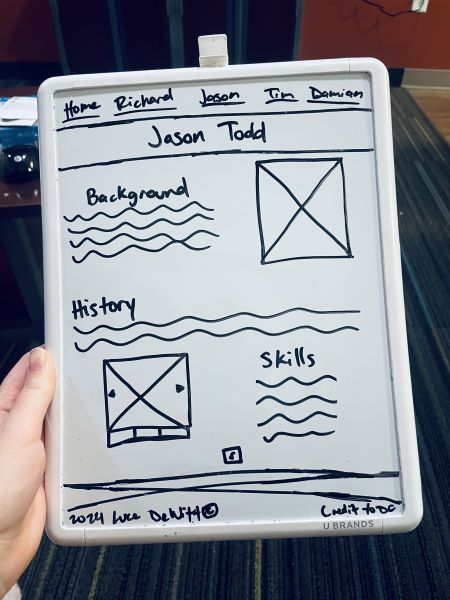 Home Richard Jason Tim Damian
Jason Todd
Background
History
Skills
2024 Luke DeWitt ©
Credit to DC
U BRANDS